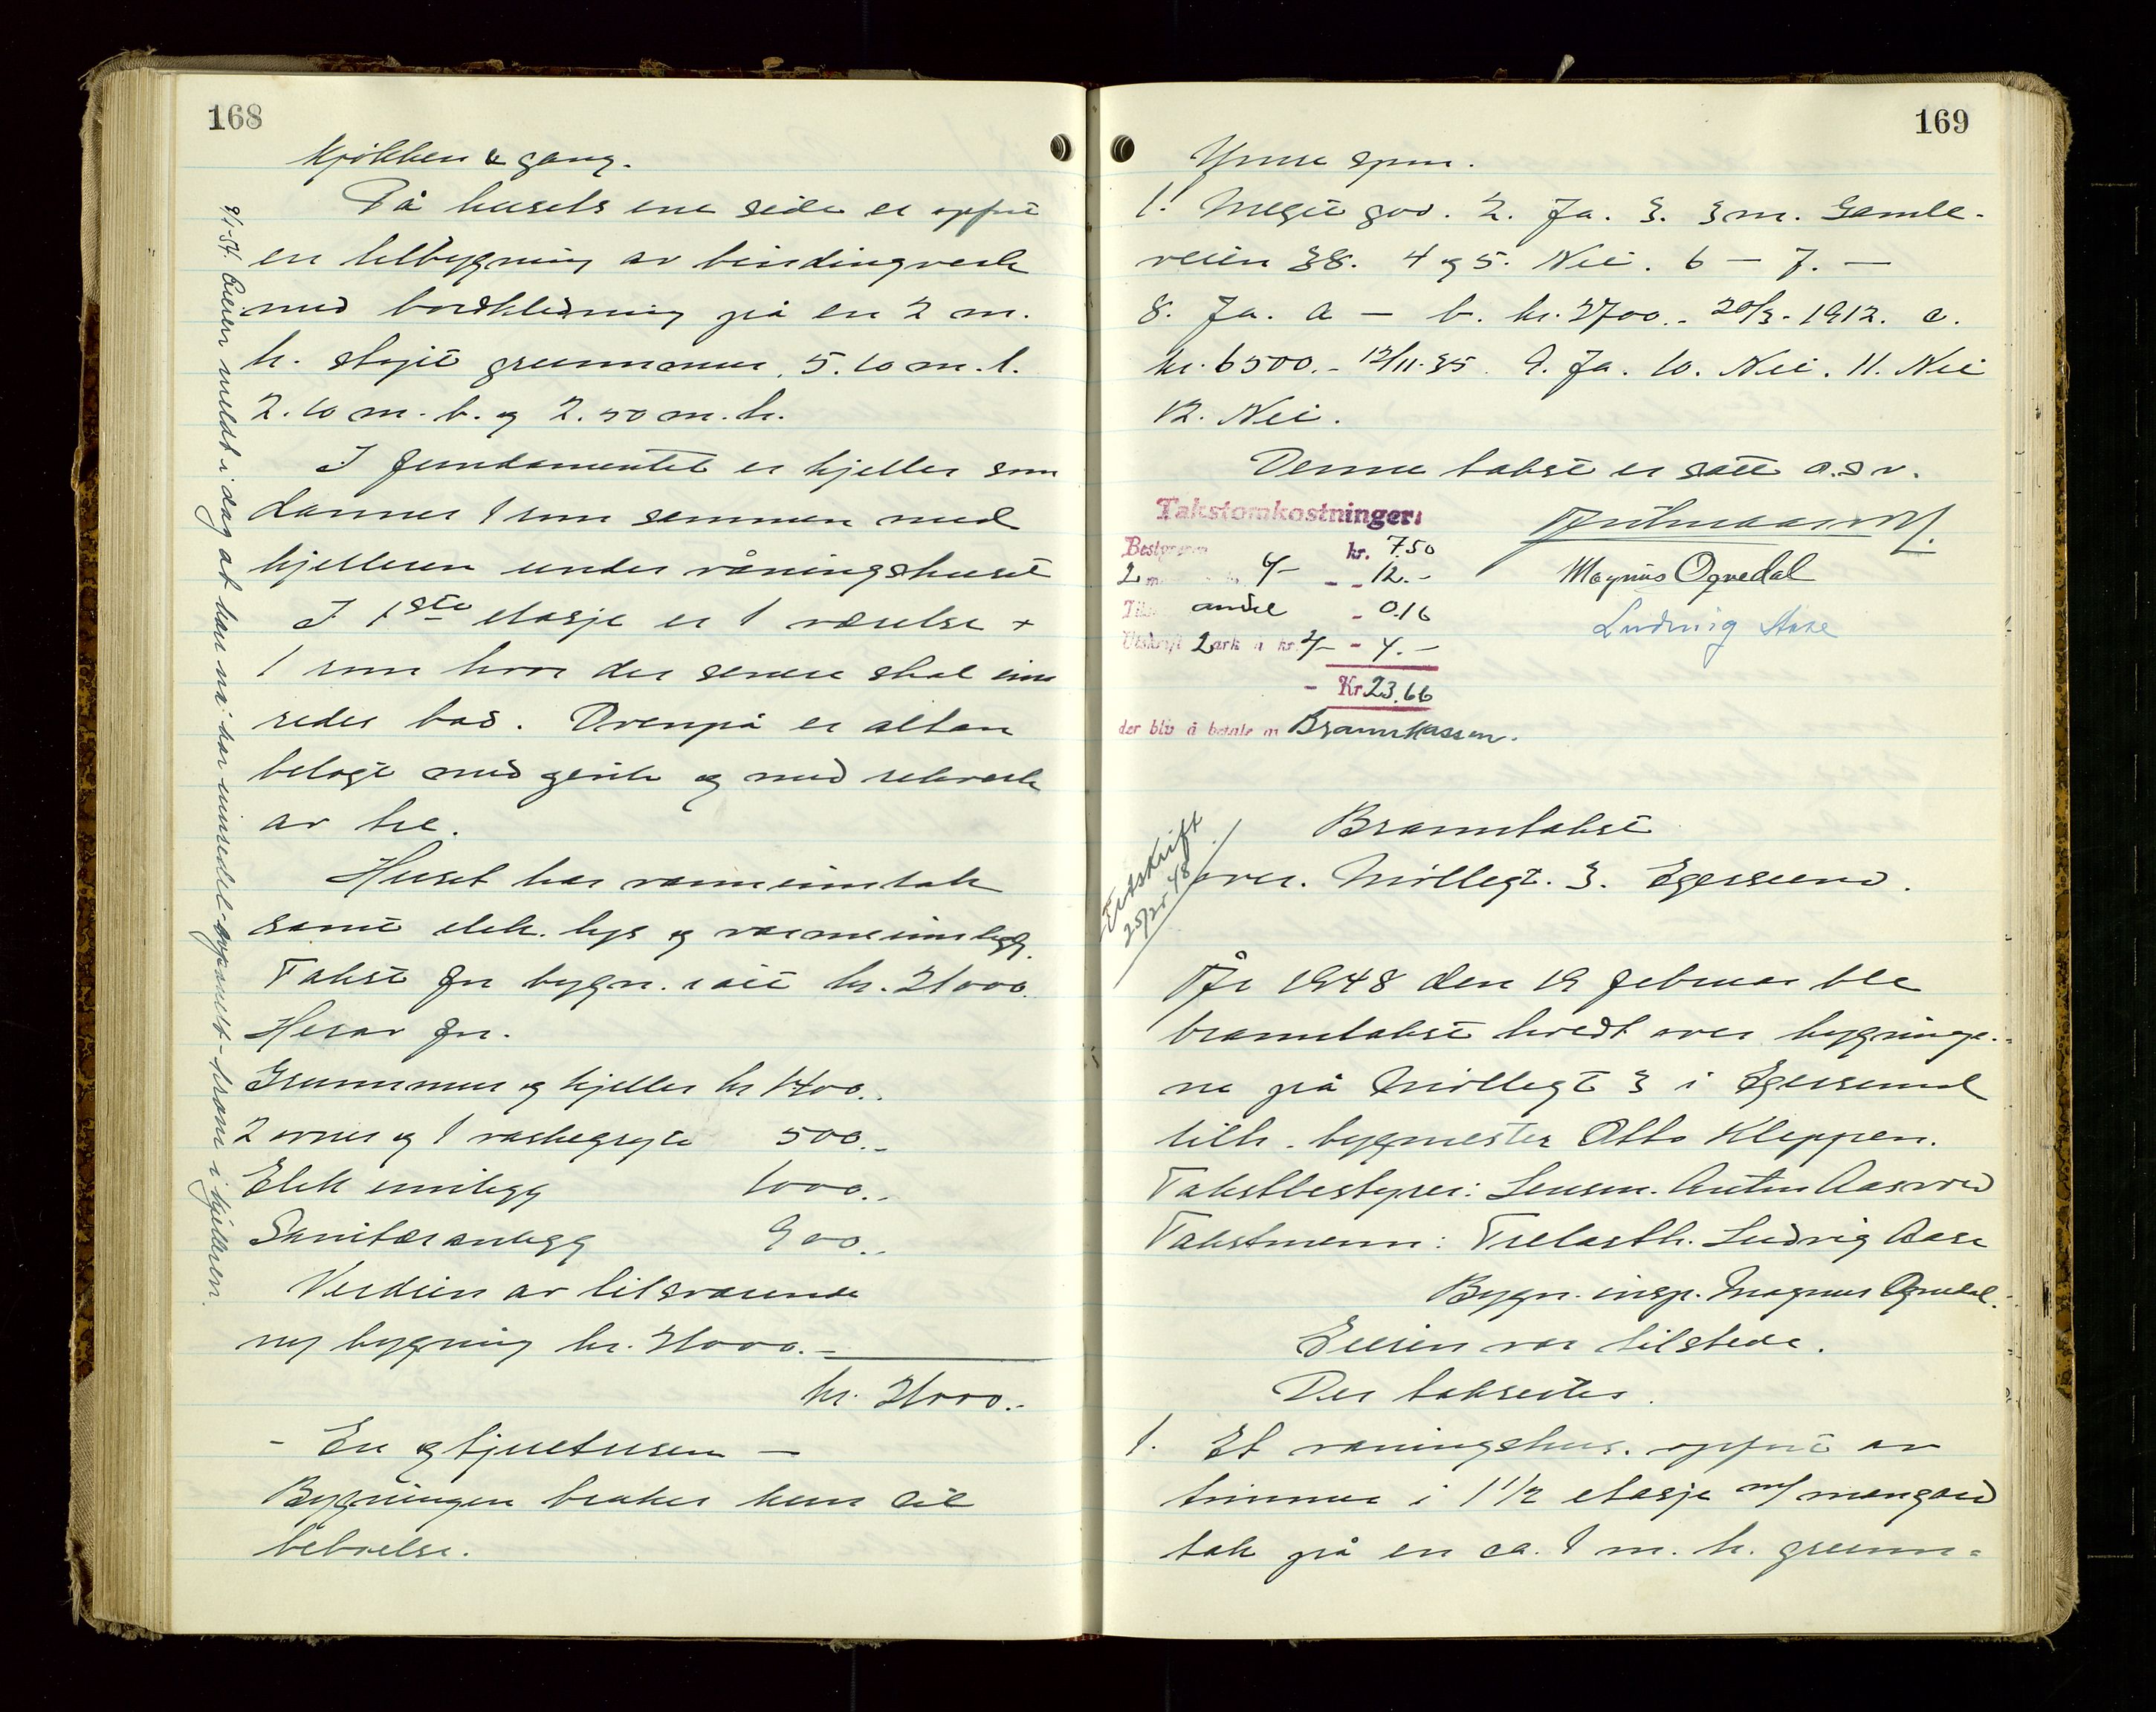 168
Kjökken & gang.
På husets ene side er opført
en tilbygning av bindingverk
med bordkledning på en 2 m.
h. støpt grunnmur. 5.10 m. l.
2.10 m. b. og 2.50 m. h.
I fundamentet er kjeller som
danner 1 rum sammen med
kjelleren under våningshuset
I 1ste etasje er 1 værelse +
1 rum hvor der senere skal inn
redes bad. Ovenpå er altan
belagt med zink og med rekverk
av tre.
Huset har vanninntak
samt elek. lys og varmeinnlegg.
Takst for bygn. i alt kr. 21000.
Herav for.
Grunnmur og kjeller kr 1400.-
2 ovner og 1 vaskegryte 500.-
Elek innlegg 1000.-
Sanitæranlegg 900.-
Verdien av tilsvarende
ny bygning kr. 21000.-
kr. 21000.-
- En og tjuetusen -
Bygningen brukes kun til
beboelse.
9/1-54. Eieren meldt i dag at han nå har innredet - oppmelt - krom i kjelleren.
169
Ymse spm.
1. Meget god. 2. Ja. 3. 3 m. Gamle-
veien 38. 4 og 5. Nei. 6 - 7. -
8. Ja. a - b. kr. 2700.- 20/3-1912. c.
kr. 6500.- 12/11-35. 9. Ja. 10. Nei. 11. Nei
12. Nei.
Denne takst er satt o.s.v.
Takstomkostninger:
Bestyreren kr. 7.50
2 m 6/- - - 12.-
andel - 0.16
Utskrift 2 ark à kr. 2/- - 4.-
- Kr 23.66
der blir å betale av Brannkassen.
Magnus Ognedal
Ludvig Aase
Utskrift
25/2 48
Branntakst
over. Møllegt. 3. Egersund.
År 1948 den 19 februar ble
branntakst holdt over bygninge-
ne på Møllegt 3 i Egersund
tilh. bygmester Otto Kleppen.
Takstbestyrer: Lensm. Anton Aasrød
Takstmenn: Trelasth. Ludvig Aase
Bygn. insp. Magnus Ognedal.
Eieren var tilstede.
Der taksertes.
1. Et våningshus. opført av
tømmer i 1 1/2 etasje m/ mangard
tak på en ca. 1 m. h. grunn=